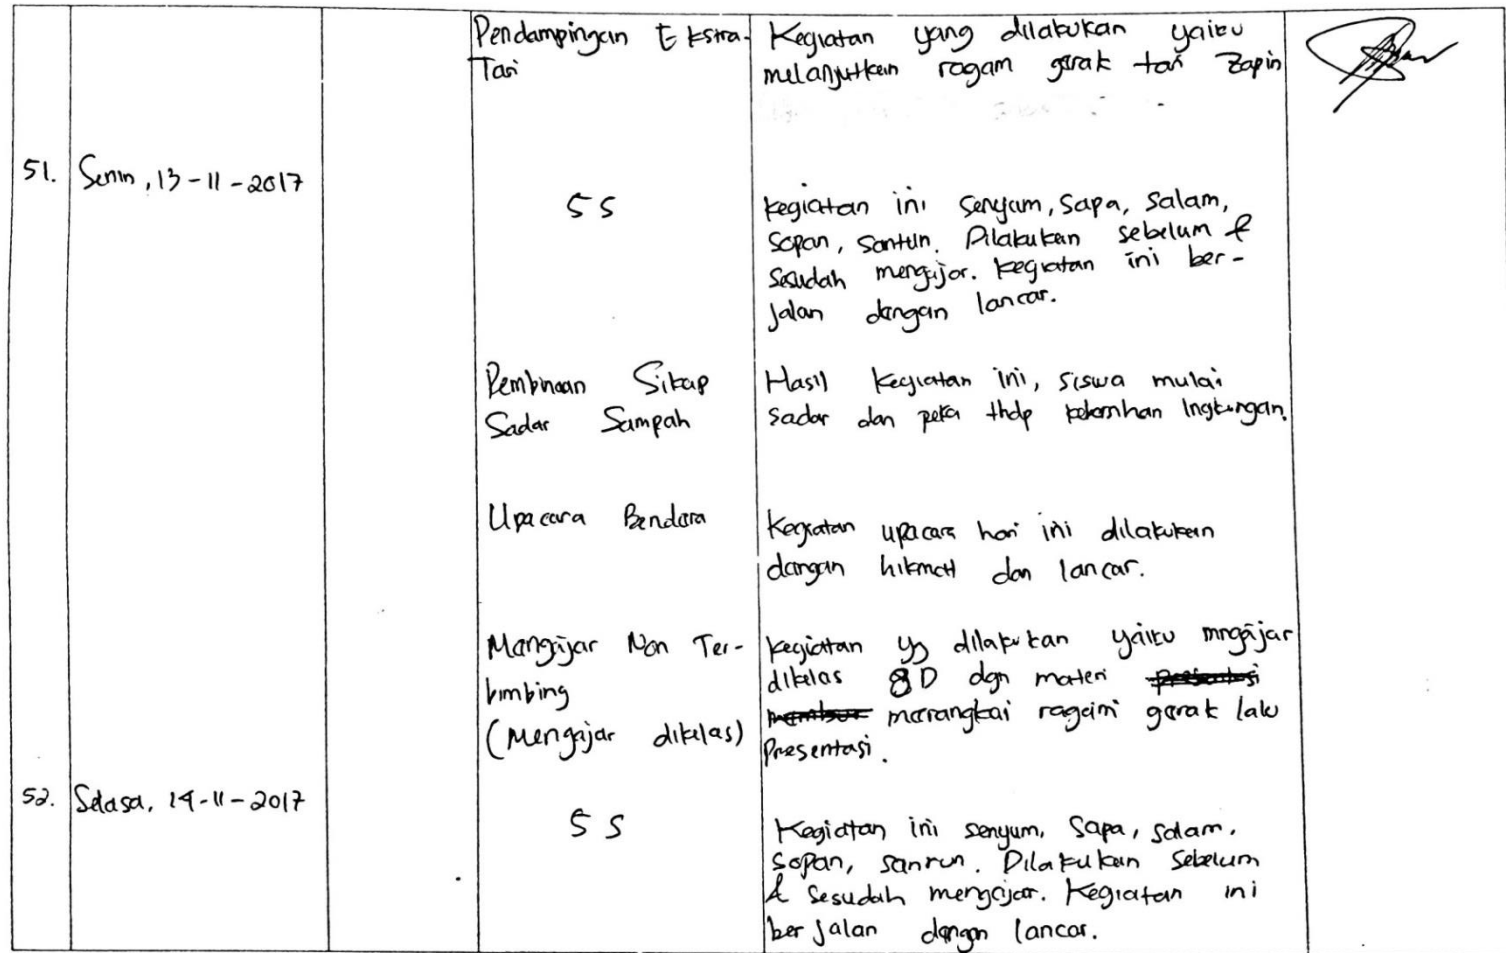 Pendampingan Ekstra-
Tari
Kegiatan yang dilakukan yaitu
melanjutkan ragam gerak tari Zapin
51. Senin, 13-11-2017
5 S
Kegiatan ini senyum, sapa, salam,
sopan, santun. Dilakukan sebelum &
sesudah mengajar. Kegiatan ini ber-
jalan dengan lancar.
Pembinaan Sikap
Sadar Sampah
Hasil kegiatan ini, siswa mulai
sadar dan peka thdp
Upacara Bendera
Kegiatan upacara hari ini dilakukan
dengan hikmat dan lancar.
Mengajar Non Ter-
bimbing
(Mengajar dikelas)
Kegiatan yg dilakukan yaitu mngajar
dikelas 8D dgn materi presentasi
merangkai ragam gerak lalu
presentasi.
52. Selasa, 14-11-2017
5 S
Kegiatan ini senyum, sapa, salam,
sopan, santun. Dilakukan sebelum
& sesudah mengajar. Kegiatan ini
berjalan dengan lancar.